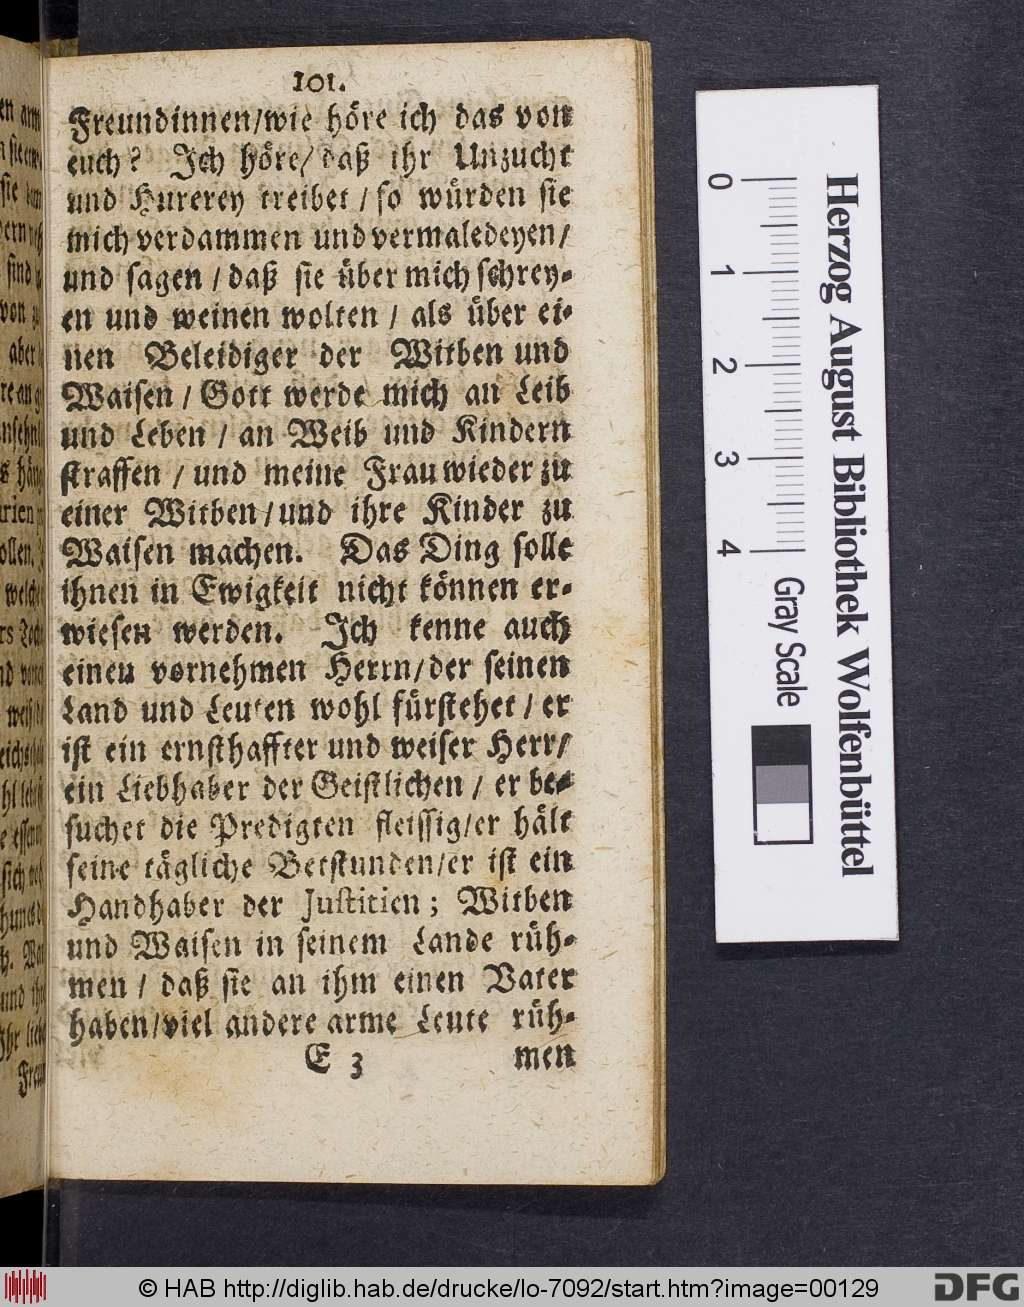 101.
Freundinnen/wie höre ich das von
euch? Ich höre/ daß ihr Unzucht
und Hurerey treibet / so würden sie
mich verdammen und vermaledeyen/
und sagen / daß sie über mich schrey-
en und weinen wolten / als über ei-
nen Beleidiger der Witben und
Waisen / Gott werde mich an Leib
und Leben / an Weib und Kindern
straffen / und meine Frau wieder zu
einer Witben/und ihre Kinder zu
Waisen machen. Das Ding solle
ihnen in Ewigkeit nicht können er-
wiesen werden. Ich kenne auch
einen vornehmen Herrn/der seinen
Land und Leuten wohl fürstehet / er
ist ein ernsthaffter und weiser Herr/
ein Liebhaber der Geistlichen / er be-
suchet die Predigten fleissig/er hält
seine tägliche Betstunden/er ist ein
Handhaber der Justitien; Witben
und Waisen in seinem Lande rüh-
men / daß sie an ihm einen Vater
haben/viel andere arme Leute rüh-
E 3 men
0 1 2 3 4
Gray Scale
Herzog August Bibliothek Wolfenbüttel
© HAB http://diglib.hab.de/drucke/lo-7092/start.htm?image=00129
DFG